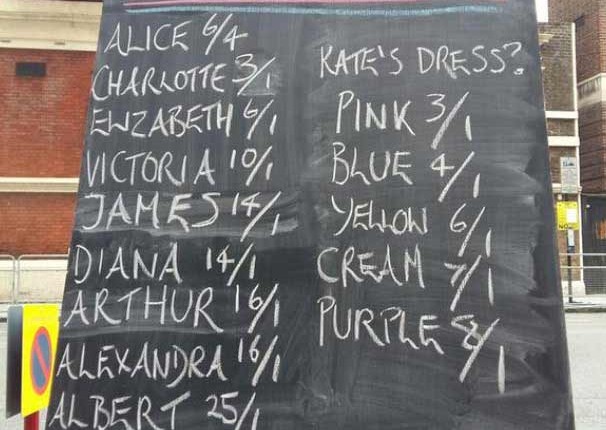 ALICE 6/4
CHARLOTTE 3/1
ELIZABETH 6/1
VICTORIA 10/1
JAMES 14/1
DIANA 14/1
ARTHUR 16/1
ALEXANDRA 16/1
ALBERT 25/1
KATE'S DRESS?
PINK 3/1
BLUE 4/1
YELLOW 6/1
CREAM 7/1
PURPLE 8/1